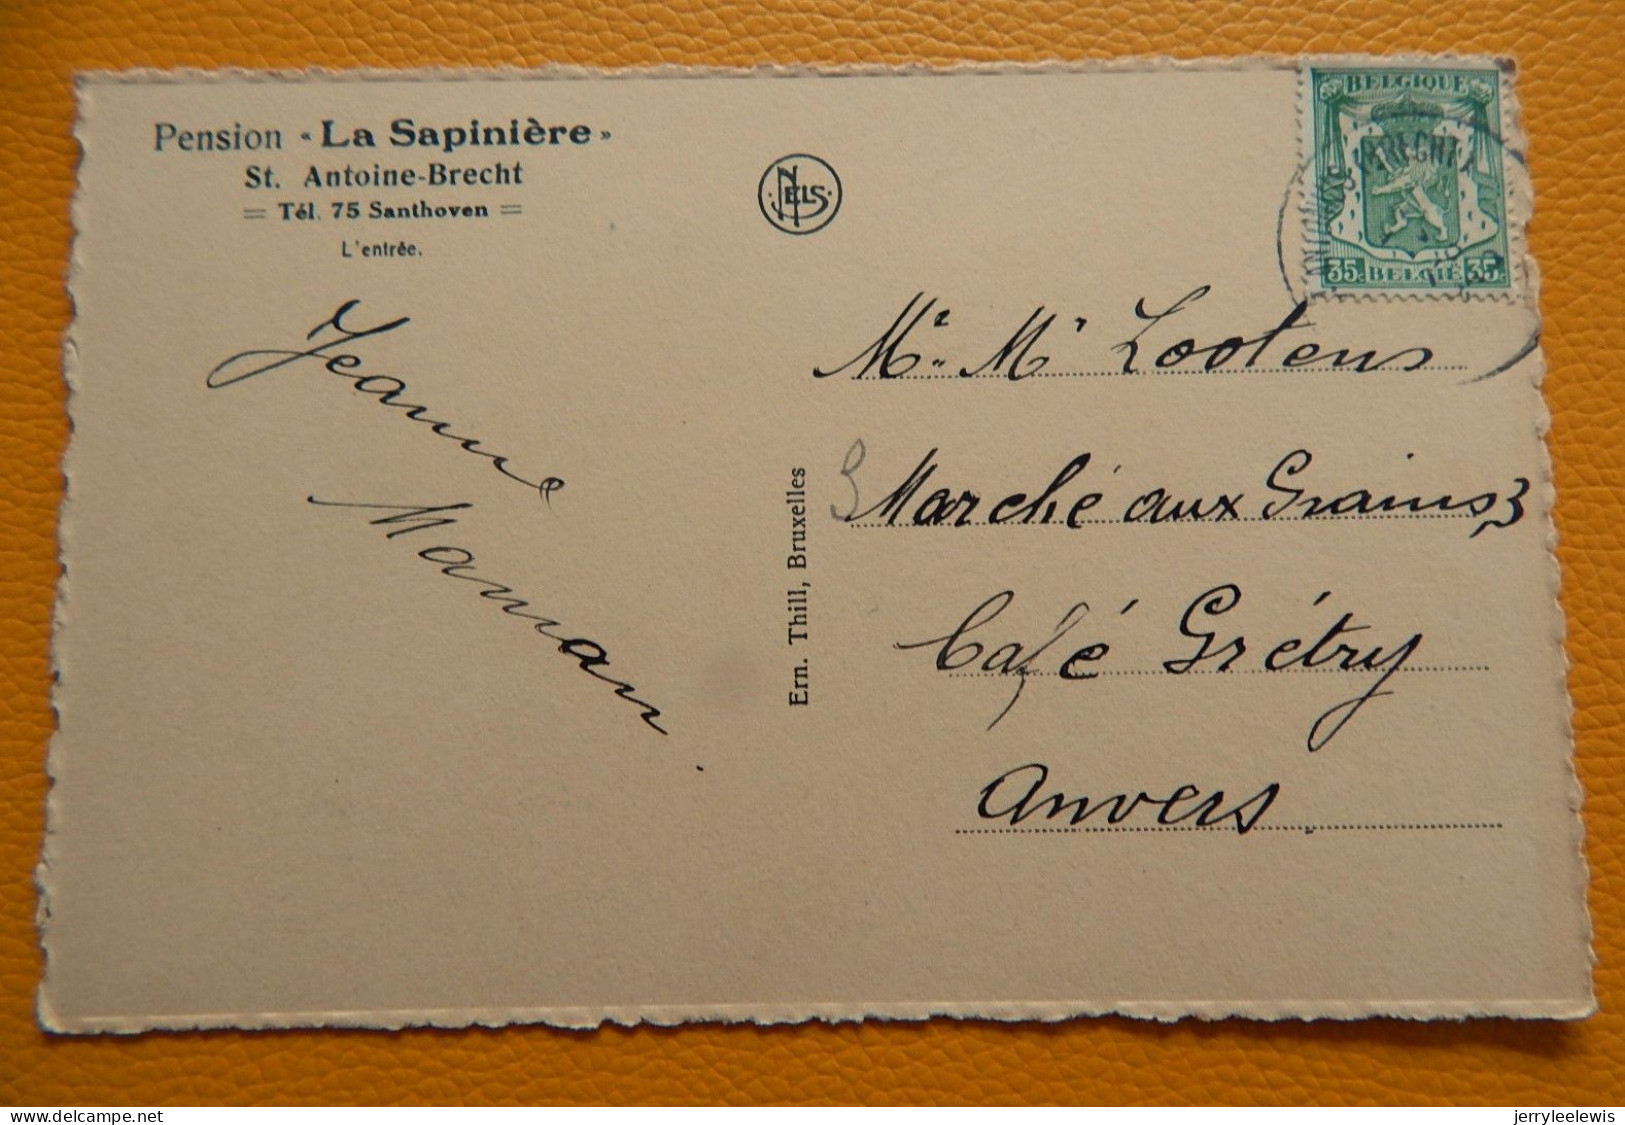 Pension « La Sapinière »
St. Antoine-Brecht
= Tél. 75 Santhoven =
L'entrée.
NELS
BELGIQUE
35c BELGIË 35c
Jeanne
Maman
Ern. Thill, Bruxelles
Mr. Mr Lootens
3 Marché aux Grains, 3
Café Grétry
Anvers
delcampe.net
jerryleelewis